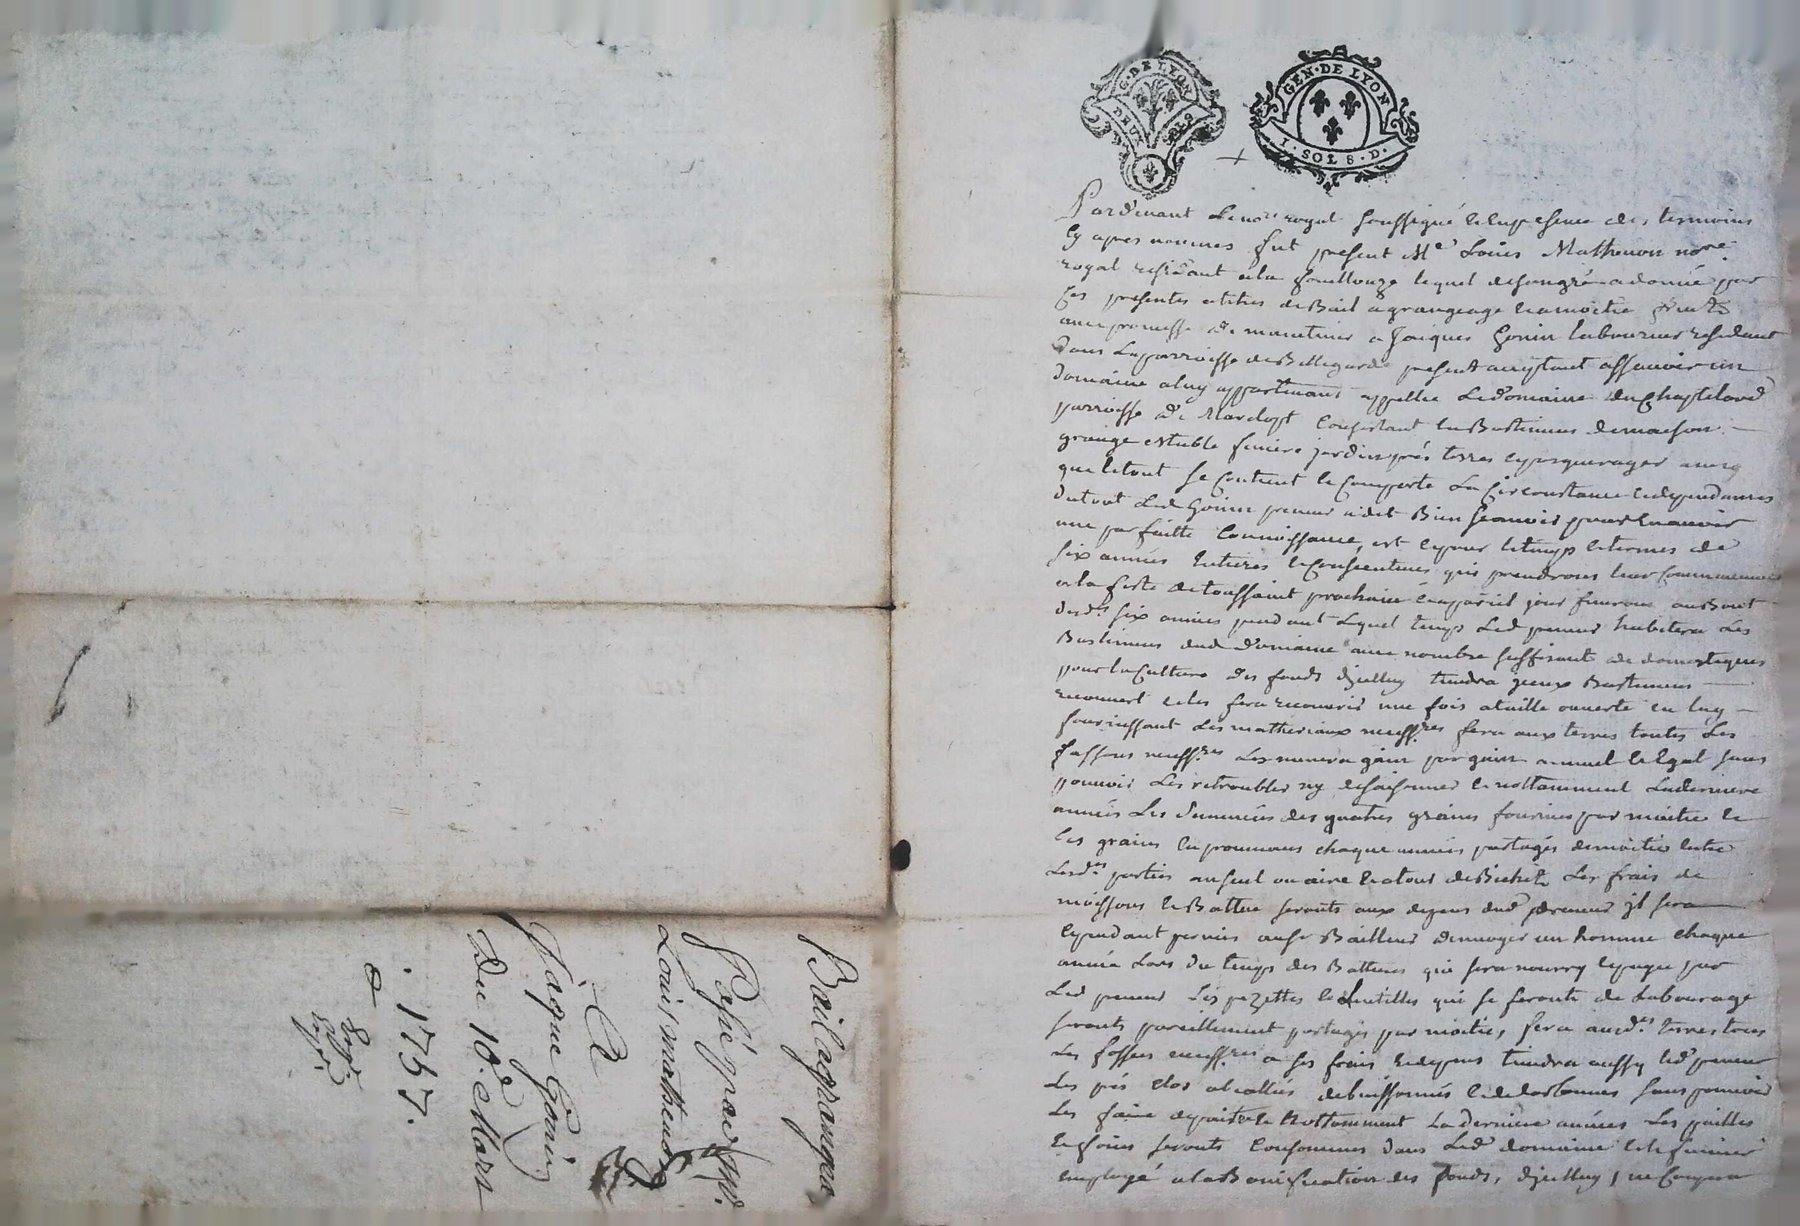 G. DE LYON
DEUX SOLS
GEN. DE LYON
1. SOL 8. D.
Pardevant le nore royal soussigné et en presence des temoins
cy apres nommes fut present Me Louis Mathevon nore
royal residant a la fouillouze lequel de son gré a donné par
ces presentes a titre de Bail a grangeage et a moitie fruits
avec promesse de maintenir a Jacques Gonin laboureur residant
dans la parroisse de Bellegarde present acceptant assavoir un
domaine a luy appartenant appellée le domaine du Chaptelard
parroisse de consistant en Bastiments de maison
grange estable feniere jardin prés terres et pasquerages ainsy
que le tout se contient et comporte la circonstance et dependances
du tout led Gonin preneur a dit Bien scavoir pour en avoir
une parfaitte connoissance, est et pour le temps et termes de
six années entieres et consecutives qui prendront leur commencement
a la feste de toussaint prochaine et a pareil jour finiront au Bout
desds six années pendant lequel temps led preneur habitera les
Bastiments dud domaine avec nombre suffisant de domestiques
pour la culture des fonds d'jcelluy tiendra jceux Bastiments
recouvert et les fera recouvrir une fois a taille ouverte en luy
fournissant les matheriaux necessres fera aux terres toutes les
fassons necessres les grain par grain annuel et egal sans
pouvoir les retroubler ny desaisonner et nottamment la derniere
année les semences des quatres grains fournies par moitie et
les grains en provenants chaque année partagés de moitie entre
lesdes parties au seuil ou aire et a tour de Bichet les frais de
moissons et Batture seronts aux depens dud preneur jl sera
cependant permis aud sr Bailleur d'envoyer un homme chaque
année lors du temps des Battures qui sera nourry et payé par
led preneur les pezettes et Lentilles qui se feronts de labourage
seronts pareillement partagés par moitié, fera auxdes terres tous
les fosses necessres a ses frais et depens tiendra aussy led preneur
les prés clos de buissonnés et sans pouvoir
les faire depaitre et nottamment la derniere années les pailles
et foins seronts consommes dans led domaine et le fumier
employé a la Bonification des fonds, d'jcelluy, ne Coupera
Bail a grangea
Passé par
Louis mathevon
A
Jaque Gonin
Du 10e. Mars
1757.